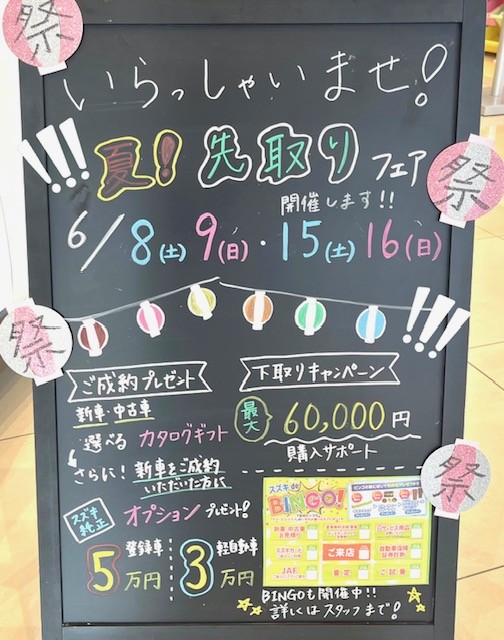 祭
いらっしゃいませ!
!!!
夏!先取りフェア
祭
開催します!!
6/8(土)9(日)・15(土)16(日)
祭
!!!
ご成約プレゼント
新車・中古車
選べる カタログギフト
さらに! 新車をご成約
いただいた方に
スズキ純正 オプションプレゼント!
登録車 5万円
軽自動車 3万円
下取りキャンペーン
最大 60,000円
購入サポート
祭
スズキ de
BINGO!
新車・中古車
お見積り
ご来店
自動車保険
証券診断
JAF
査定
ご試乗
BINGOも開催中!!
詳しくはスタッフまで!